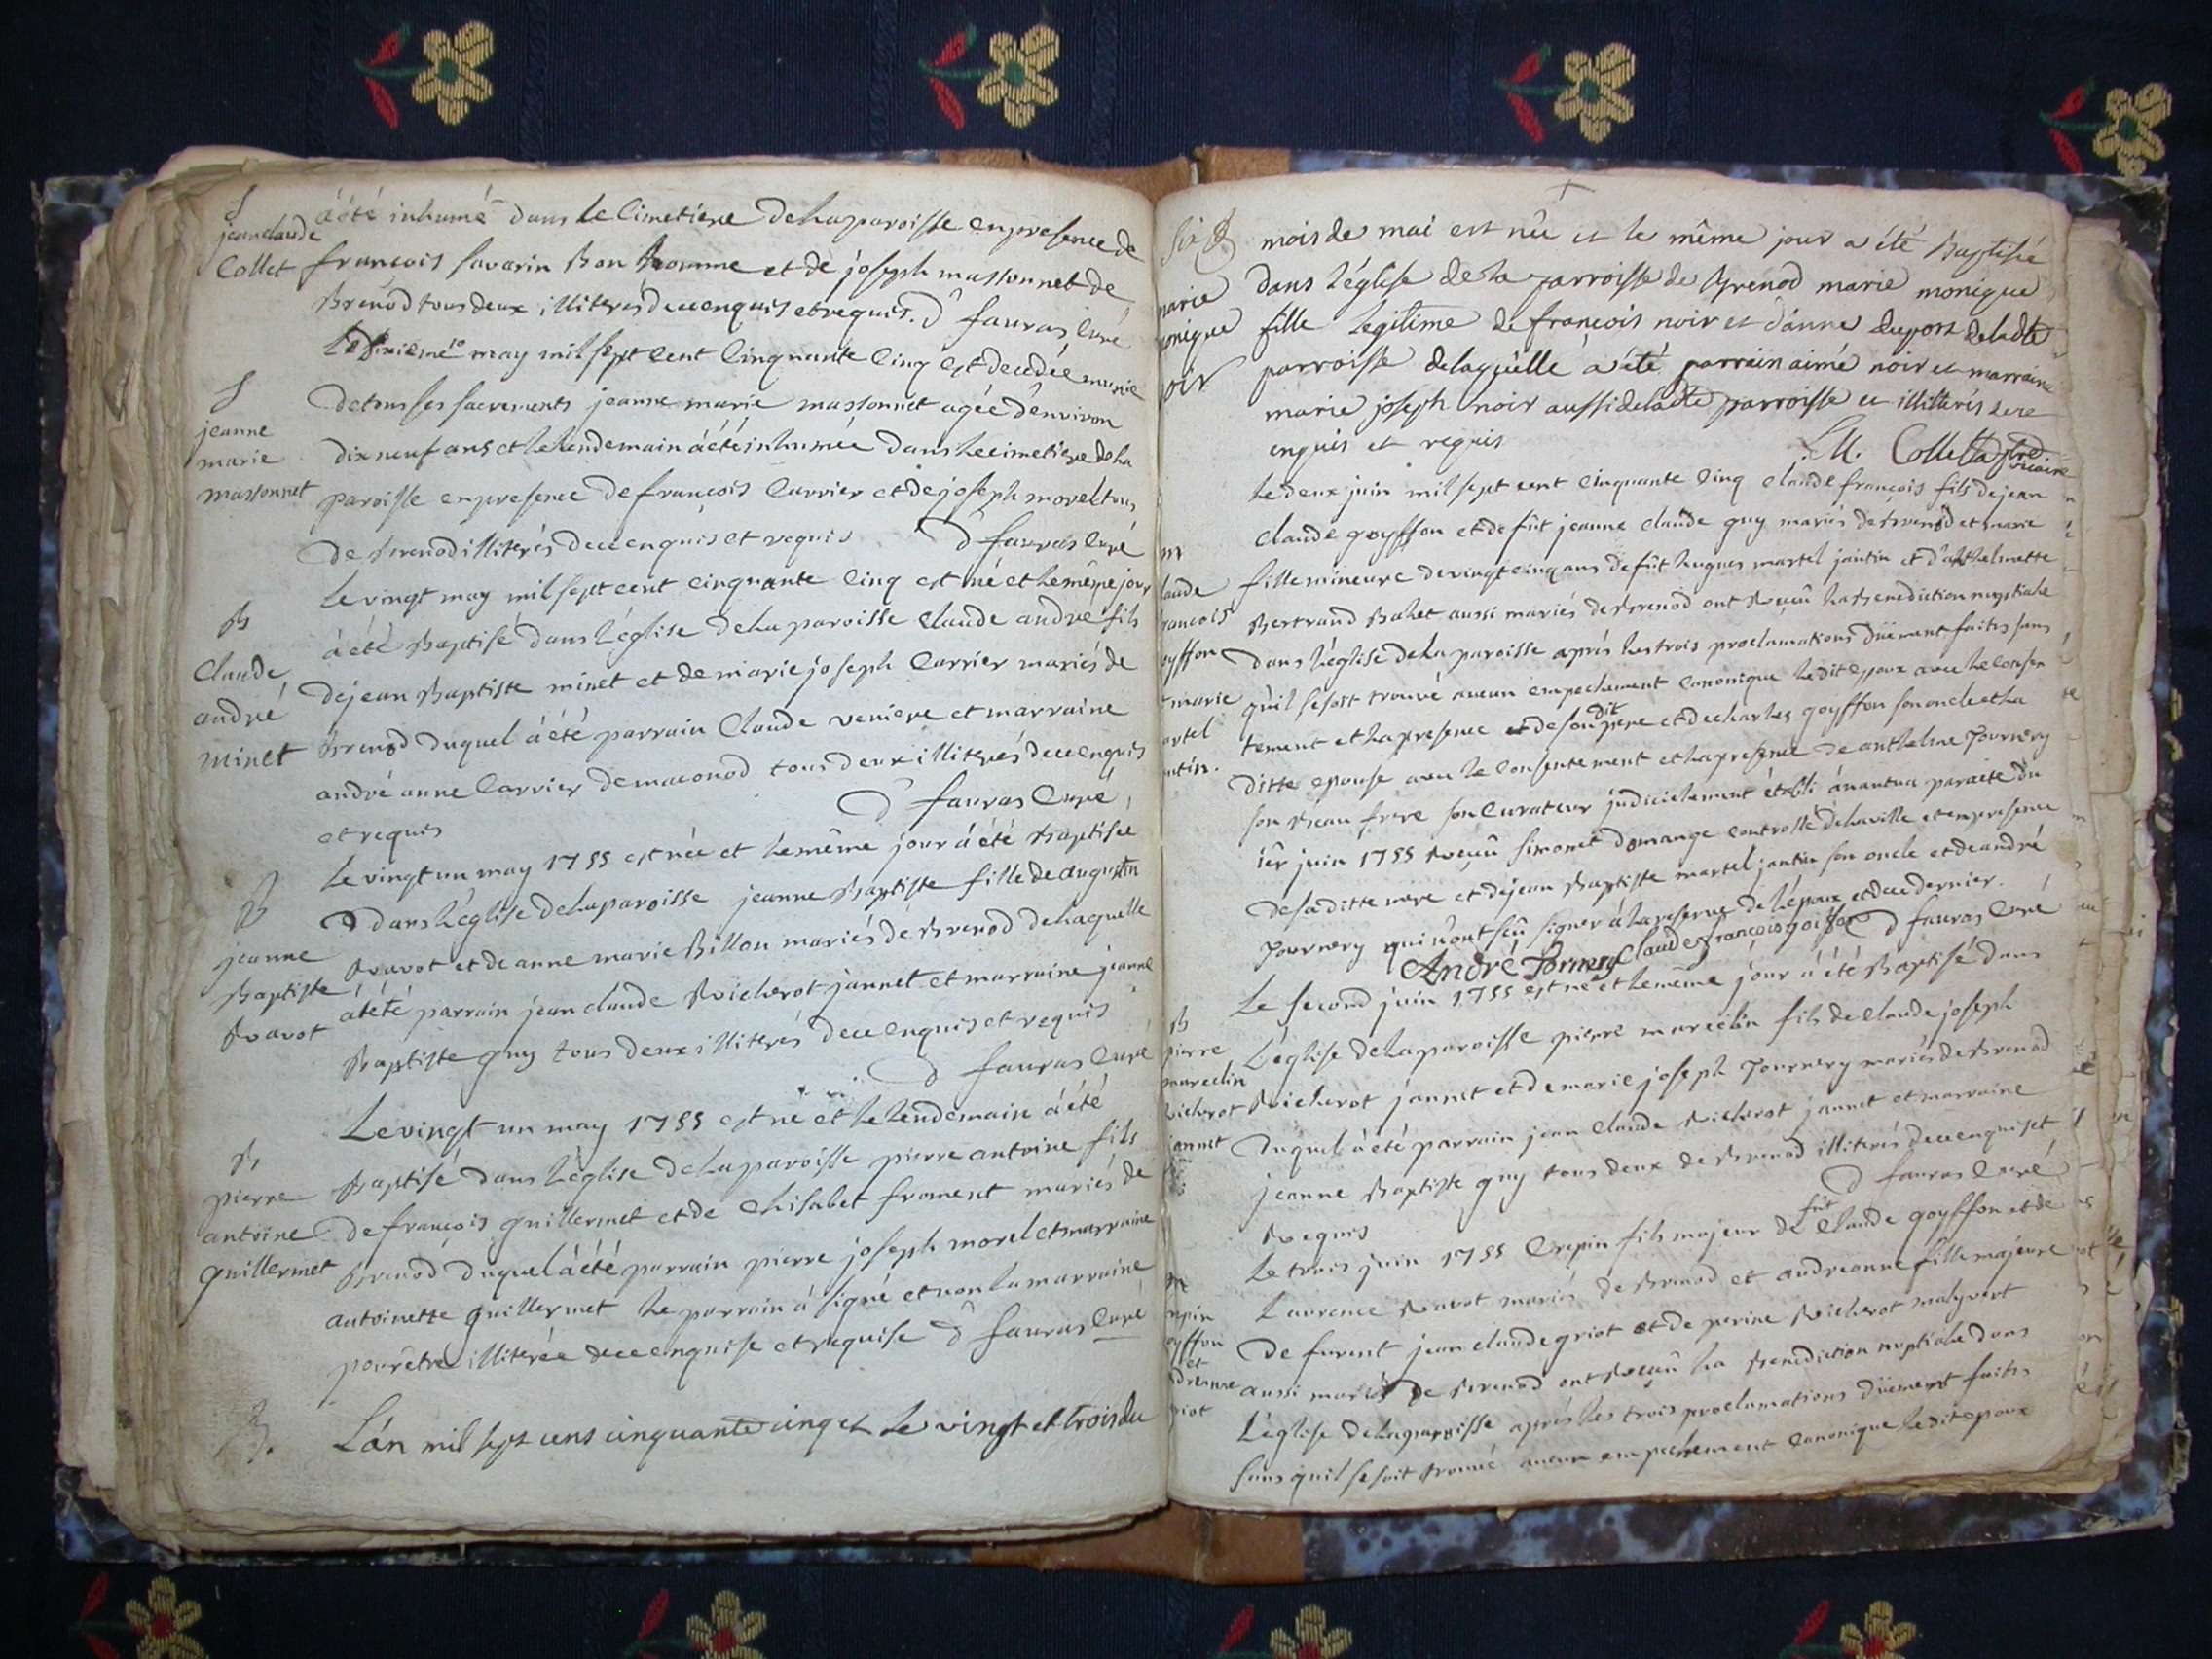 S
jean claude
Collet
a été inhumé dans le cimetiere de la paroisse en presence de
francois savarin Bon homme et de joseph massonnet de
Brenod tous deux illiterés de ce enquis et requis. D fauras Curé
Le may mil sept cent Cinquante Cinq est decedée munie
S
jeanne
marie
massonnet
de tous ses sacrements jeanne marie massonnet agée d'environ
dix neuf ans et le lendemain a été inhumée dans le cimetiere de la
paroisse en presence de francois Carrier et de joseph morel tous
de brenod illiterés de ce enquis et requis D fauras Curé
Le vingt may mil sept cent cinquante cinq est né et le même jour
B
Claude
andré
minet
à été Baptisé dans l'église de la paroisse Claude andré fils
de jean Baptiste minet et de marie joseph Carrier mariés de
Brenod duquel à été parrain Claude veniere et marraine
andré anne Carrier de maconod tous deux illiterés de ce enquis
et requis D fauras Curé
Le vingt un may 1755 est née et le même jour à été Baptisée
B
jeanne
Baptiste
Ravot
dans l'église de la paroisse jeanne Baptiste fille de augustin
Ravot et de anne marie Billon mariés de Brenod de laquelle
à été parrain jean claude Richerot jannet et marraine jeanne
Baptiste guy tous deux illiterés de ce enquis et requis
D fauras Curé
Le vingt un may 1755 est né et le lendemain à été
B
pierre
antoine
guillermet
Baptisé dans l'église de la paroisse pierre antoine fils
de françois guillermet et de Elisabet froment mariés de
Brenod duquel à été parrain pierre joseph morel et marraine
antoinette guillermet le parrain à signé et non la marraine
pour être illiterée de ce enquise et requise D fauras Curé
B. L'an mil sept cens cinquante cinq et le vingt et trois du
mois de mai est née et le même jour a été Baptisée
marie
monique
noir
dans l'église de la parroisse de Brenod marie monique
fille legitime de francois noir et d'anne duport de ladte
parroisse de laquelle à été parrain aimé noir et marraine
marie joseph noir aussi de ladte parroisse et illiterés de ce
enquis et requis Collet vicaire
Le deux juin mil sept cent cinquante Cinq claude francois fils de jean
m
claude
francois
goyffon
et marie
martel
jantin.
claude goyffon et de fût jeanne claude guy mariés de brenod et marie
fille mineure de vingt cinq ans de fût hugues martel jantin et d'anthelmette
Bertrand Bahet aussi mariés de Brenod ont Reçeû la Benediction nuptiale
dans l'église de la paroisse aprés les trois proclamations düement faites sans
qu'il se soit trouvé aucun empechement canonique ledit epoux avec le consen
tement et la presence de son dit pere et de charles goyffon son oncle et la
ditte epouse avec le consentement et la presence de anthelme Tournery
son Beau frere son curateur judiciellement établi à nantua par acte du
1er juin 1755 Reçeû simonet domange controllé de la ville et en presence
de sa ditte mere et de jean Baptiste martel jantin son oncle et de andré
Tournery qui n'ont sçû signer à la reserve de l'époux et de ce dernier.
André Tornery Claude françois goiffon D fauras Curé
Le second juin 1755 est né et le même jour à été Baptisé dans
B
pierre
marcelin
Richerot
jannet
L'église de la paroisse pierre marcelin fils de claude joseph
Richerot jannet et de marie joseph Tournery mariés de Brenod
duquel à été parrain jean Claude Richerot jannet et marraine
jeanne Baptiste guy tous deux de Brenod illiterés de ce enquis et
Requis D fauras Curé
Le trois juin 1755 Crepin fils majeur de fût Claude goyffon et de
m
crepin
goyffon
et
andreanne
griot
Laurence Ravot mariés de Brenod et andreanne fille majeure
de furent jean claude griot et de perine Richerot malyvert
aussi mariés de Brenod ont Reçeû la Benediction nuptiale dans
L'église de la paroisse aprés les trois proclamations düement faites
sans qu'il se soit trouvé aucun empechement canonique ledit epoux